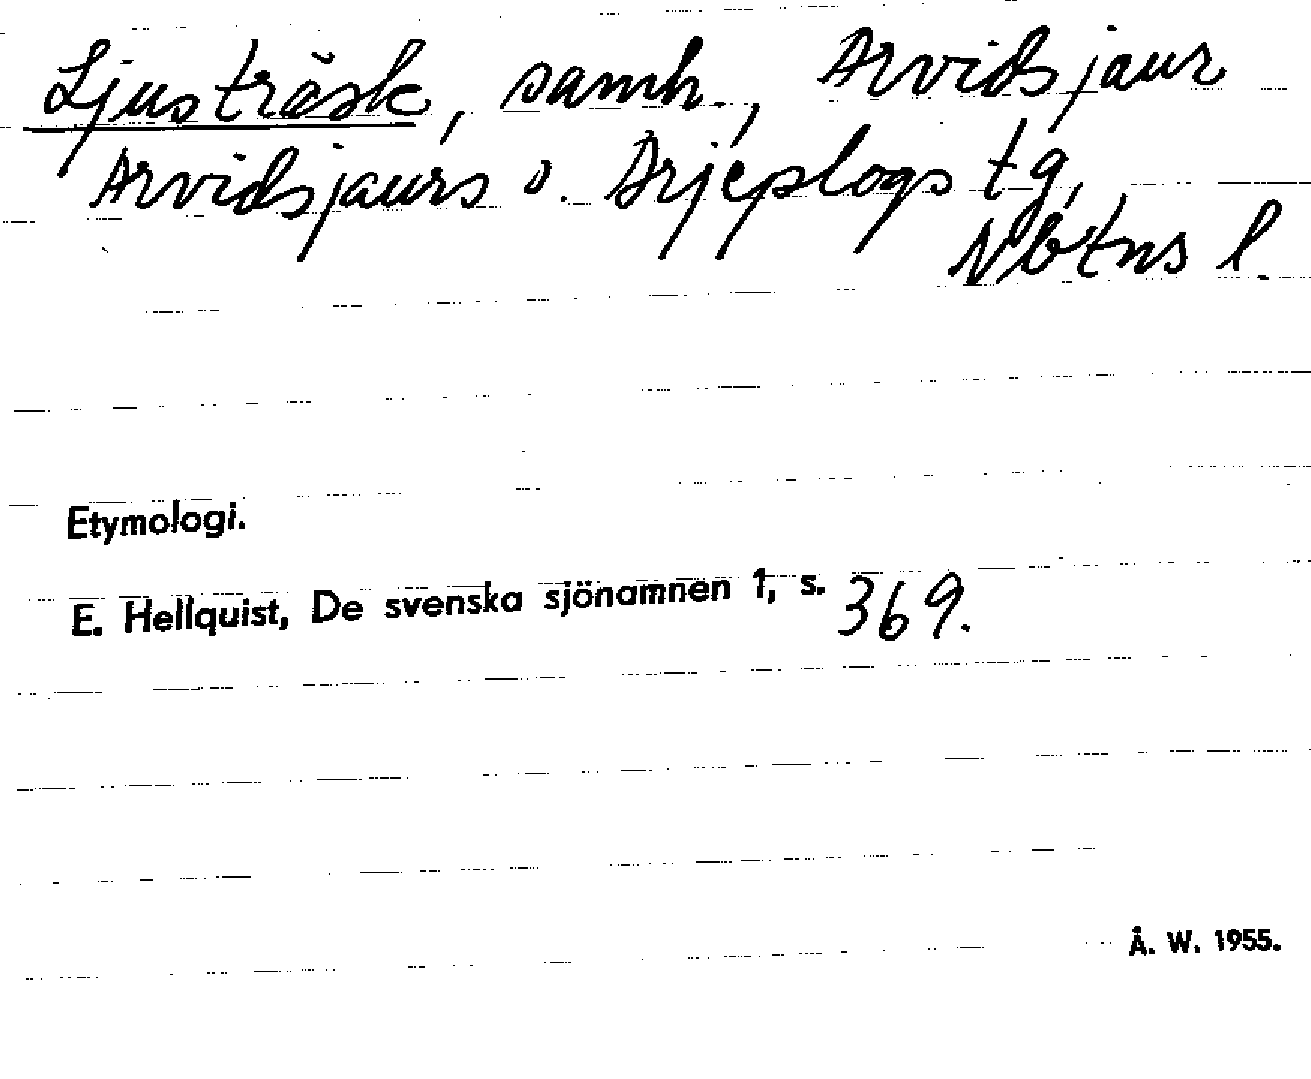 Ljusträsk, samh., Arvidsjaur
Arvidsjaurs o. Arjeplogs tg,
Nbtns l.
Etymologi.
E. Hellquist, De svenska sjönamnen 1, s. 369.
Å. W. 1955.